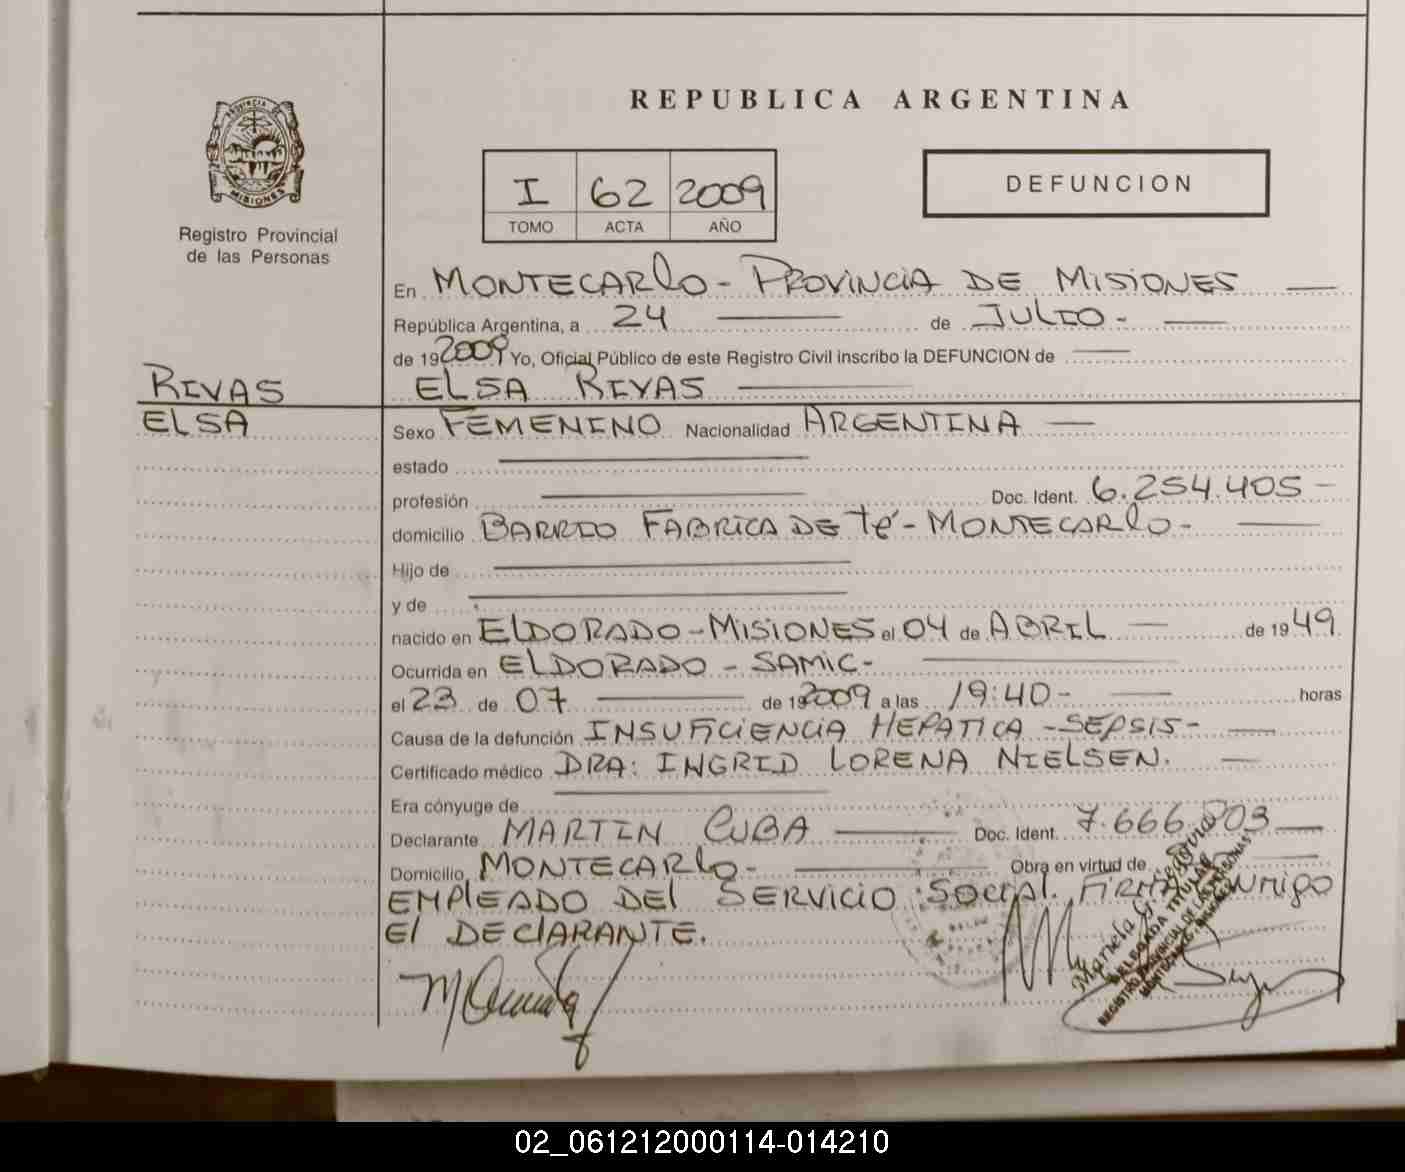 REPUBLICA ARGENTINA
PROVINCIA DE
MISIONES
I 62 2009
TOMO ACTA AÑO
DEFUNCION
Registro Provincial
de las Personas
En MONTECARlO - PROVINCIA DE MISIONES
República Argentina, a 24 de JULIO -
de 192009 Yo, Oficial Público de este Registro Civil inscribo la DEFUNCION de
RIVAS ELSA RIVAS
ELSA
Sexo FEMENINO Nacionalidad ARGENTINA
estado
profesión Doc. Ident. 6.254.405 -
domicilio BARRIO FABRICA DE té - MONTECARlO -
Hijo de
y de
nacido en ElDORADO - MISIONES el 04 de ABRIL de 1949
Ocurrida en ELDORADO - SAMIC -
el 23 de 07 de 192009 a las 19:40 - horas
Causa de la defunción INSUFICIENCIA HEPATICA - SEPSIS -
Certificado médico DRA: INGRID LORENA NIELSEN.
Era cónyuge de
Declarante MARTIN CUBA Doc. Ident. 7.666.803
Domicilio MONTECARlO - Obra en virtud de
EMPlEADO DEl SERVICIO SOCIAl. FIRMA CONMIGO
El DEClARANTE.
Mariela G.
DELEGADA TITULAR
REGISTRO PROVINCIAL DE LAS PERSONAS
02_061212000114-014210